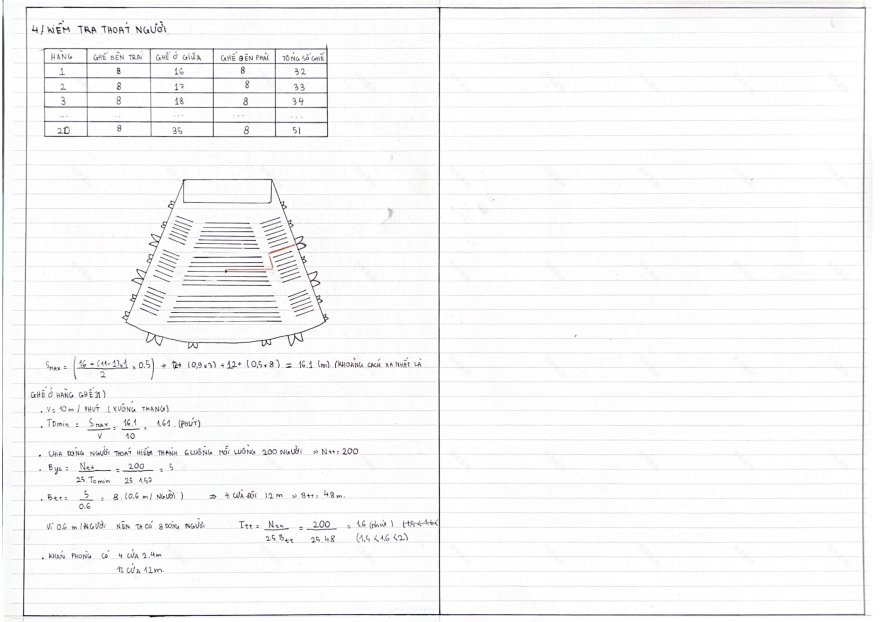 4/ KIỂM TRA THOÁT NGƯỜI.
HÀNG GHẾ BÊN TRÁI GHẾ Ở GIỮA GHẾ BÊN PHẢI TỔNG SỐ GHẾ
1 8 16 8 32
2 8 17 8 33
3 8 18 8 34
... ... ... ... ...
20 8 35 8 51
Smax = (16 + (11-1)x1 / 2 x 0.5) + (0,9x3) + 1,2 + (0,5x8) = 16.1 (m) (KHOẢNG CÁCH XA NHẤT LÀ
GHẾ Ở HÀNG GHẾ 11)
. V = 10m / PHÚT (XUỐNG THANG)
. TDmin = Smax / V = 16.1 / 10 = 1.61 (PHÚT)
. CHIA DÒNG NGƯỜI THOÁT HIỂM THÀNH 6 LUỒNG MỖI LUỒNG 200 NGƯỜI => Ntt = 200
. Byc = Ntt / 25.TDmin = 200 / 25.1,57 = 5
. Btt = 5 / 0.6 = 8 (0,6 m/ NGƯỜI) => 4 CỬA ĐÔI 1,2m => Btt = 4,8m.
VÌ 0.6 m/NGƯỜI NÊN TA CÓ 8 DÒNG NGƯỜI Ttt = Ntt / 25.Btt = 200 / 25.4,8 = 1.6 (phút)
(1,5 < 1,6 < 2)
. KHÁN PHÒNG CÓ 4 CỬA 2.4m
12 CỬA 1.2m